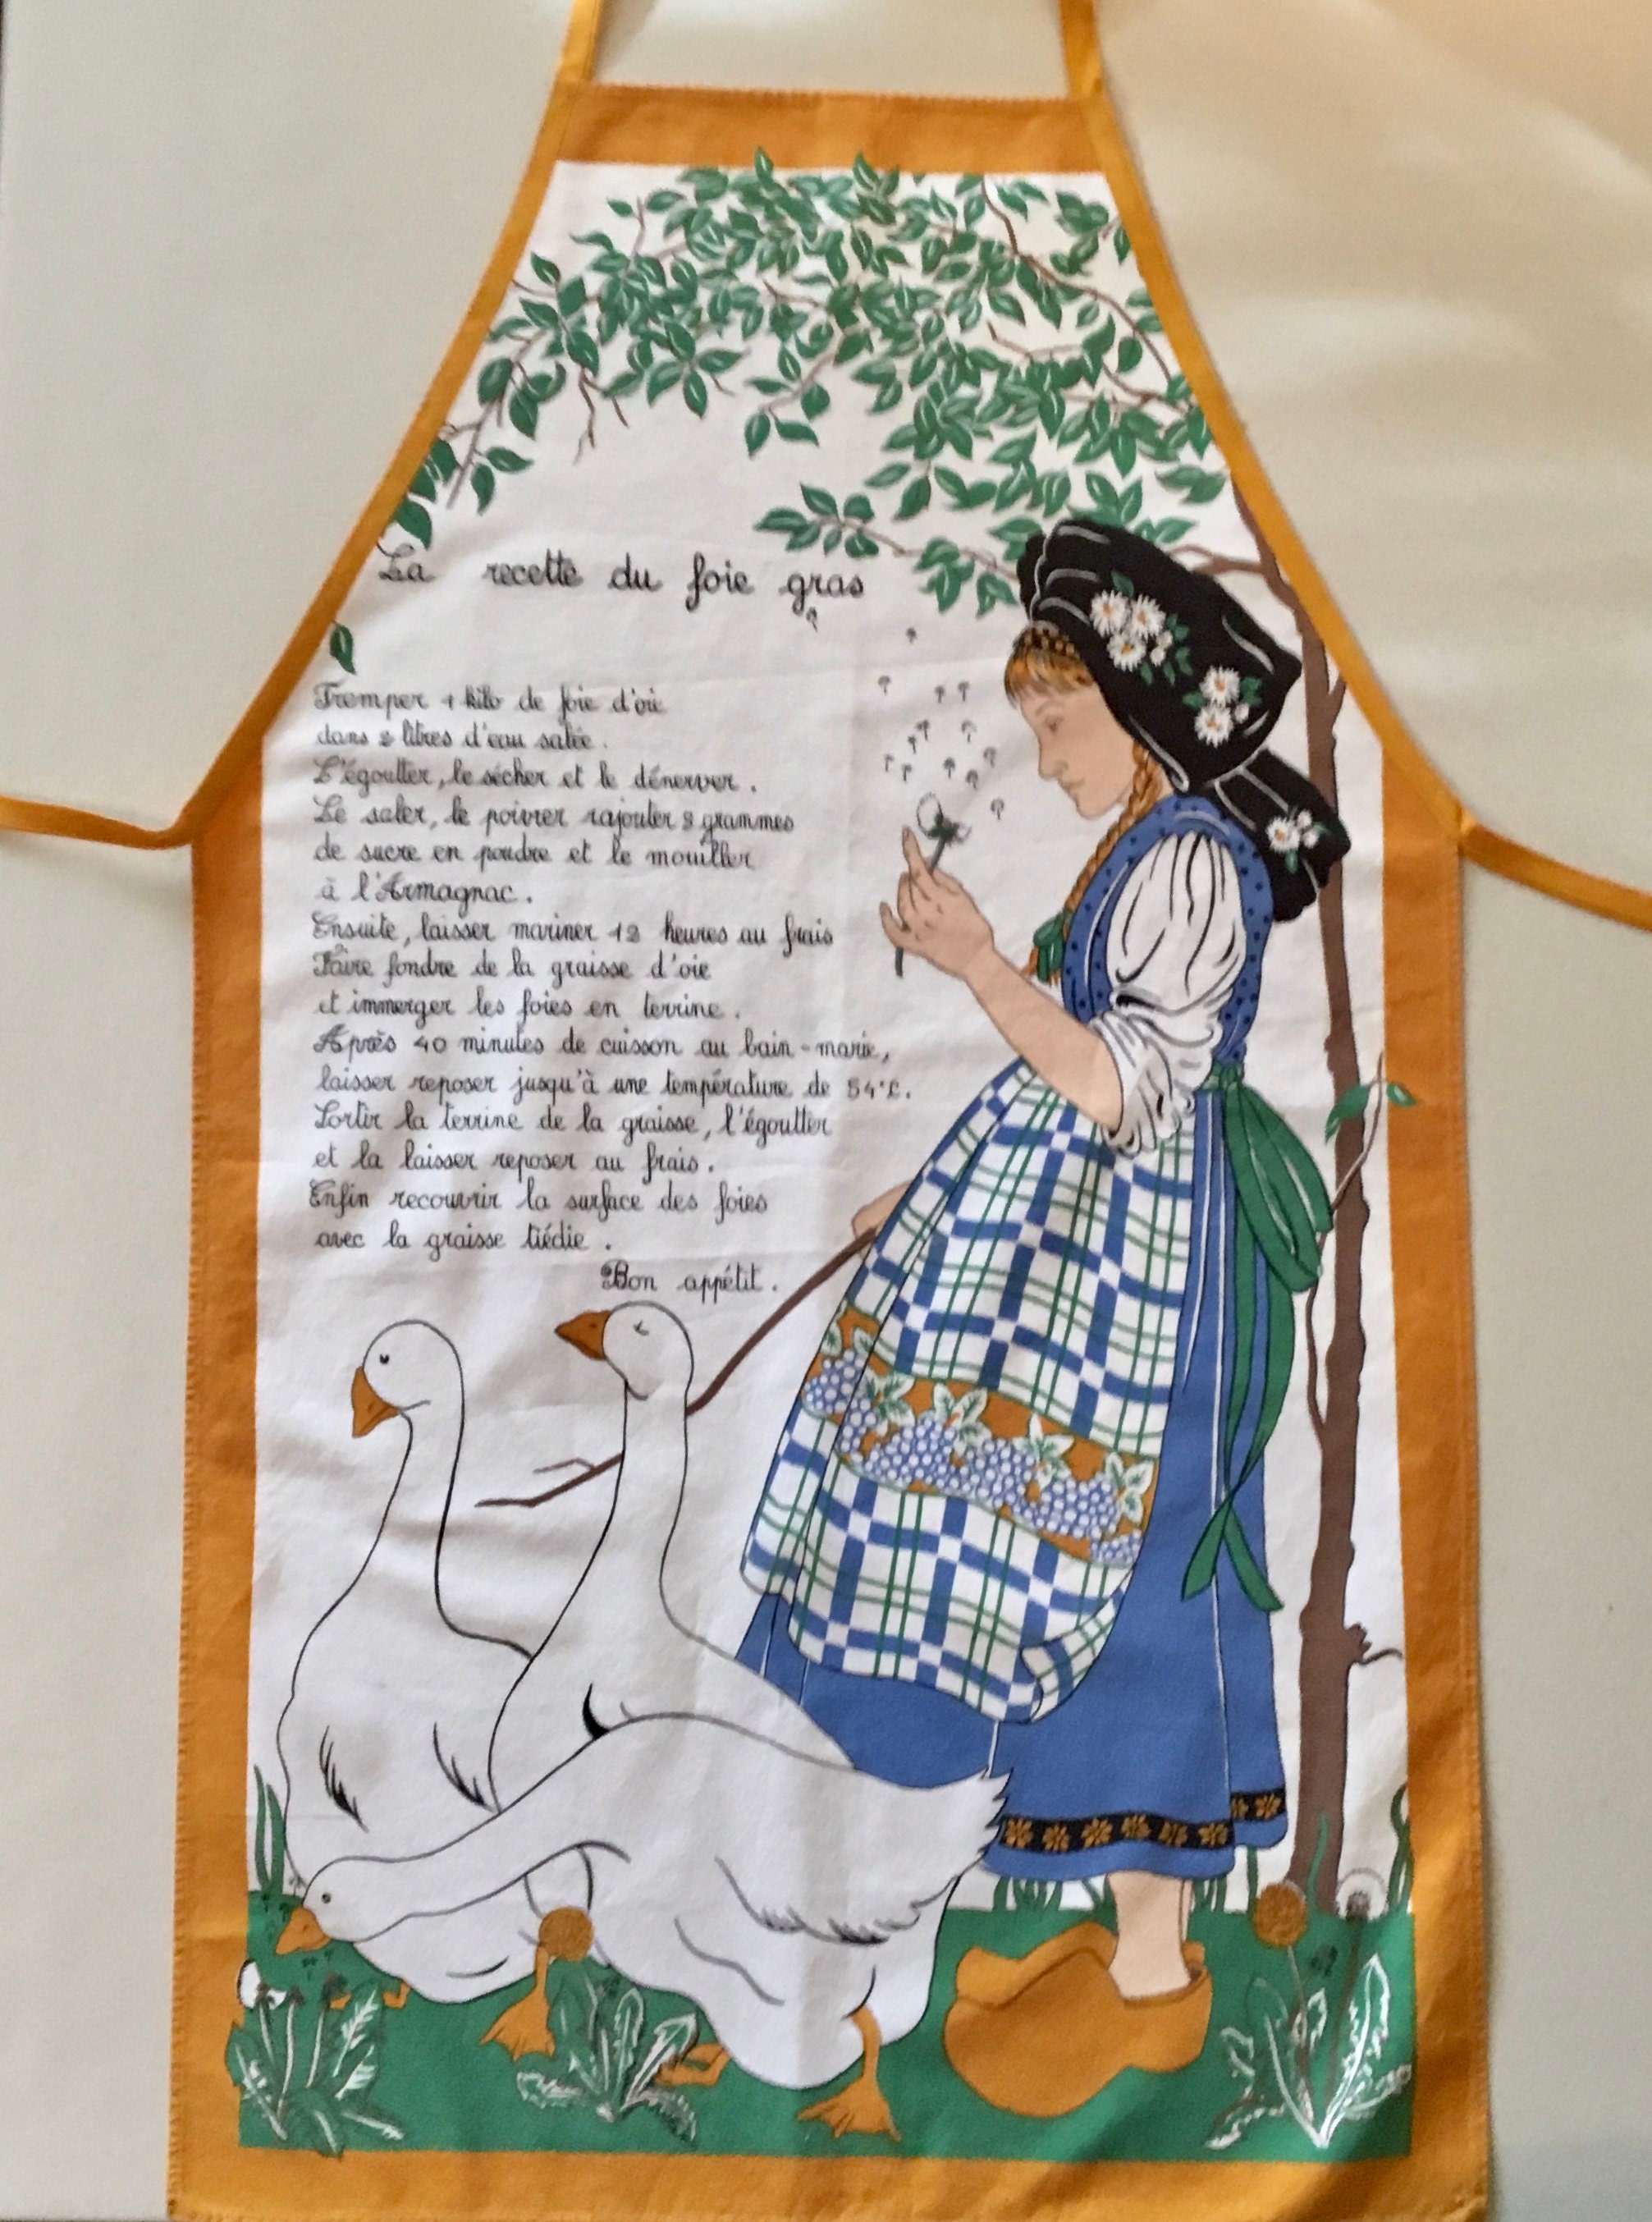 La recette du foie gras
Tremper 1 kilo de foie d'oie
dans 2 litres d'eau salée.
L'égoutter, le sécher et le dénerver.
Le saler, le poivrer rajouter 8 grammes
de sucre en poudre et le mouiller
à l'Armagnac.
Ensuite, laisser mariner 12 heures au frais
Faire fondre de la graisse d'oie
et immerger les foies en terrine.
Après 40 minutes de cuisson au bain-marie,
laisser reposer jusqu'à une température de 54°C.
Sortir la terrine de la graisse, l'égoutter
et la laisser reposer au frais.
Enfin recouvrir la surface des foies
avec la graisse tiédie.
Bon appétit.